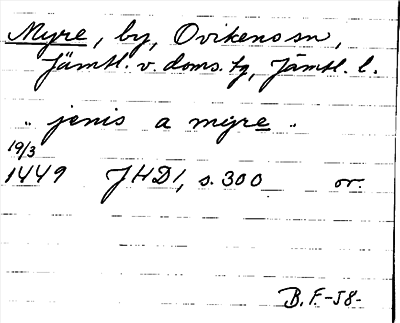 Myre, by, Ovikens sn,
Jämtl. v. doms. tg, Jämtl. l.
"jenis a myre"
19/3
1449 JHD1, s. 300 or.
B. F. -58-